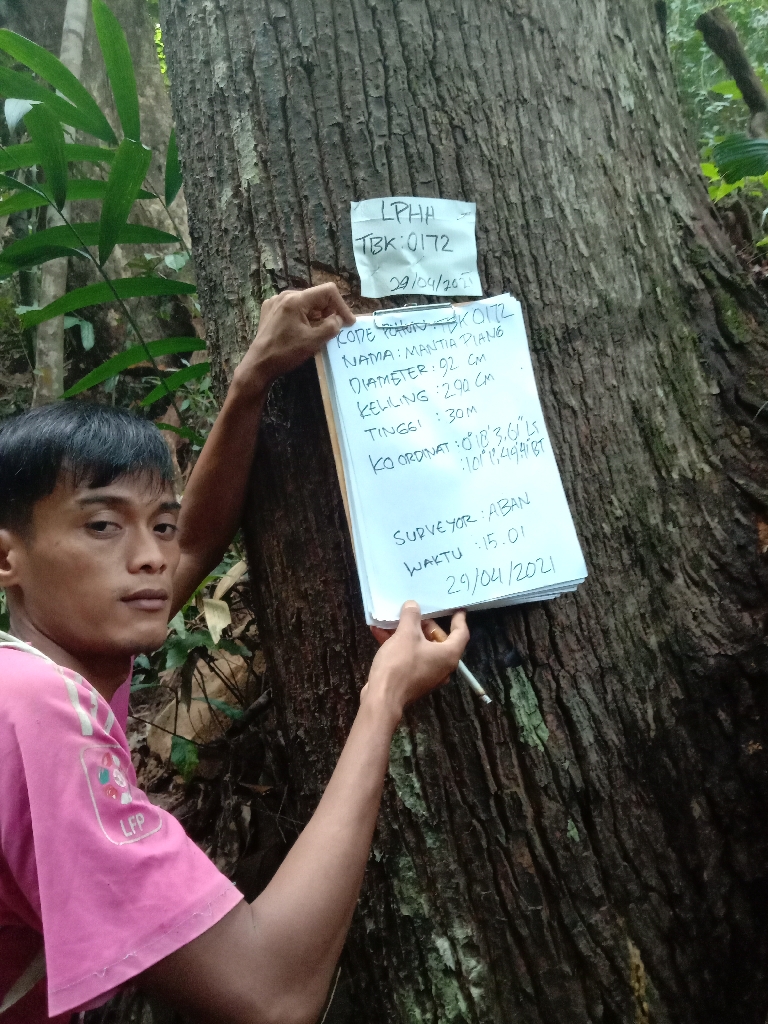 LPHA
TBK:0172
29/04/2021
KODE POHON :TBK 0172
NAMA : MANTIA DIANG
DIAMETER : 92 CM
KELILING : 290 CM
TINGGI : 30 M
KOORDINAT : 0°18'3,61" LS
:101°1',49,41"BT
SURVEYOR : ABAN
WAKTU :15.01
29/04/2021
LFP